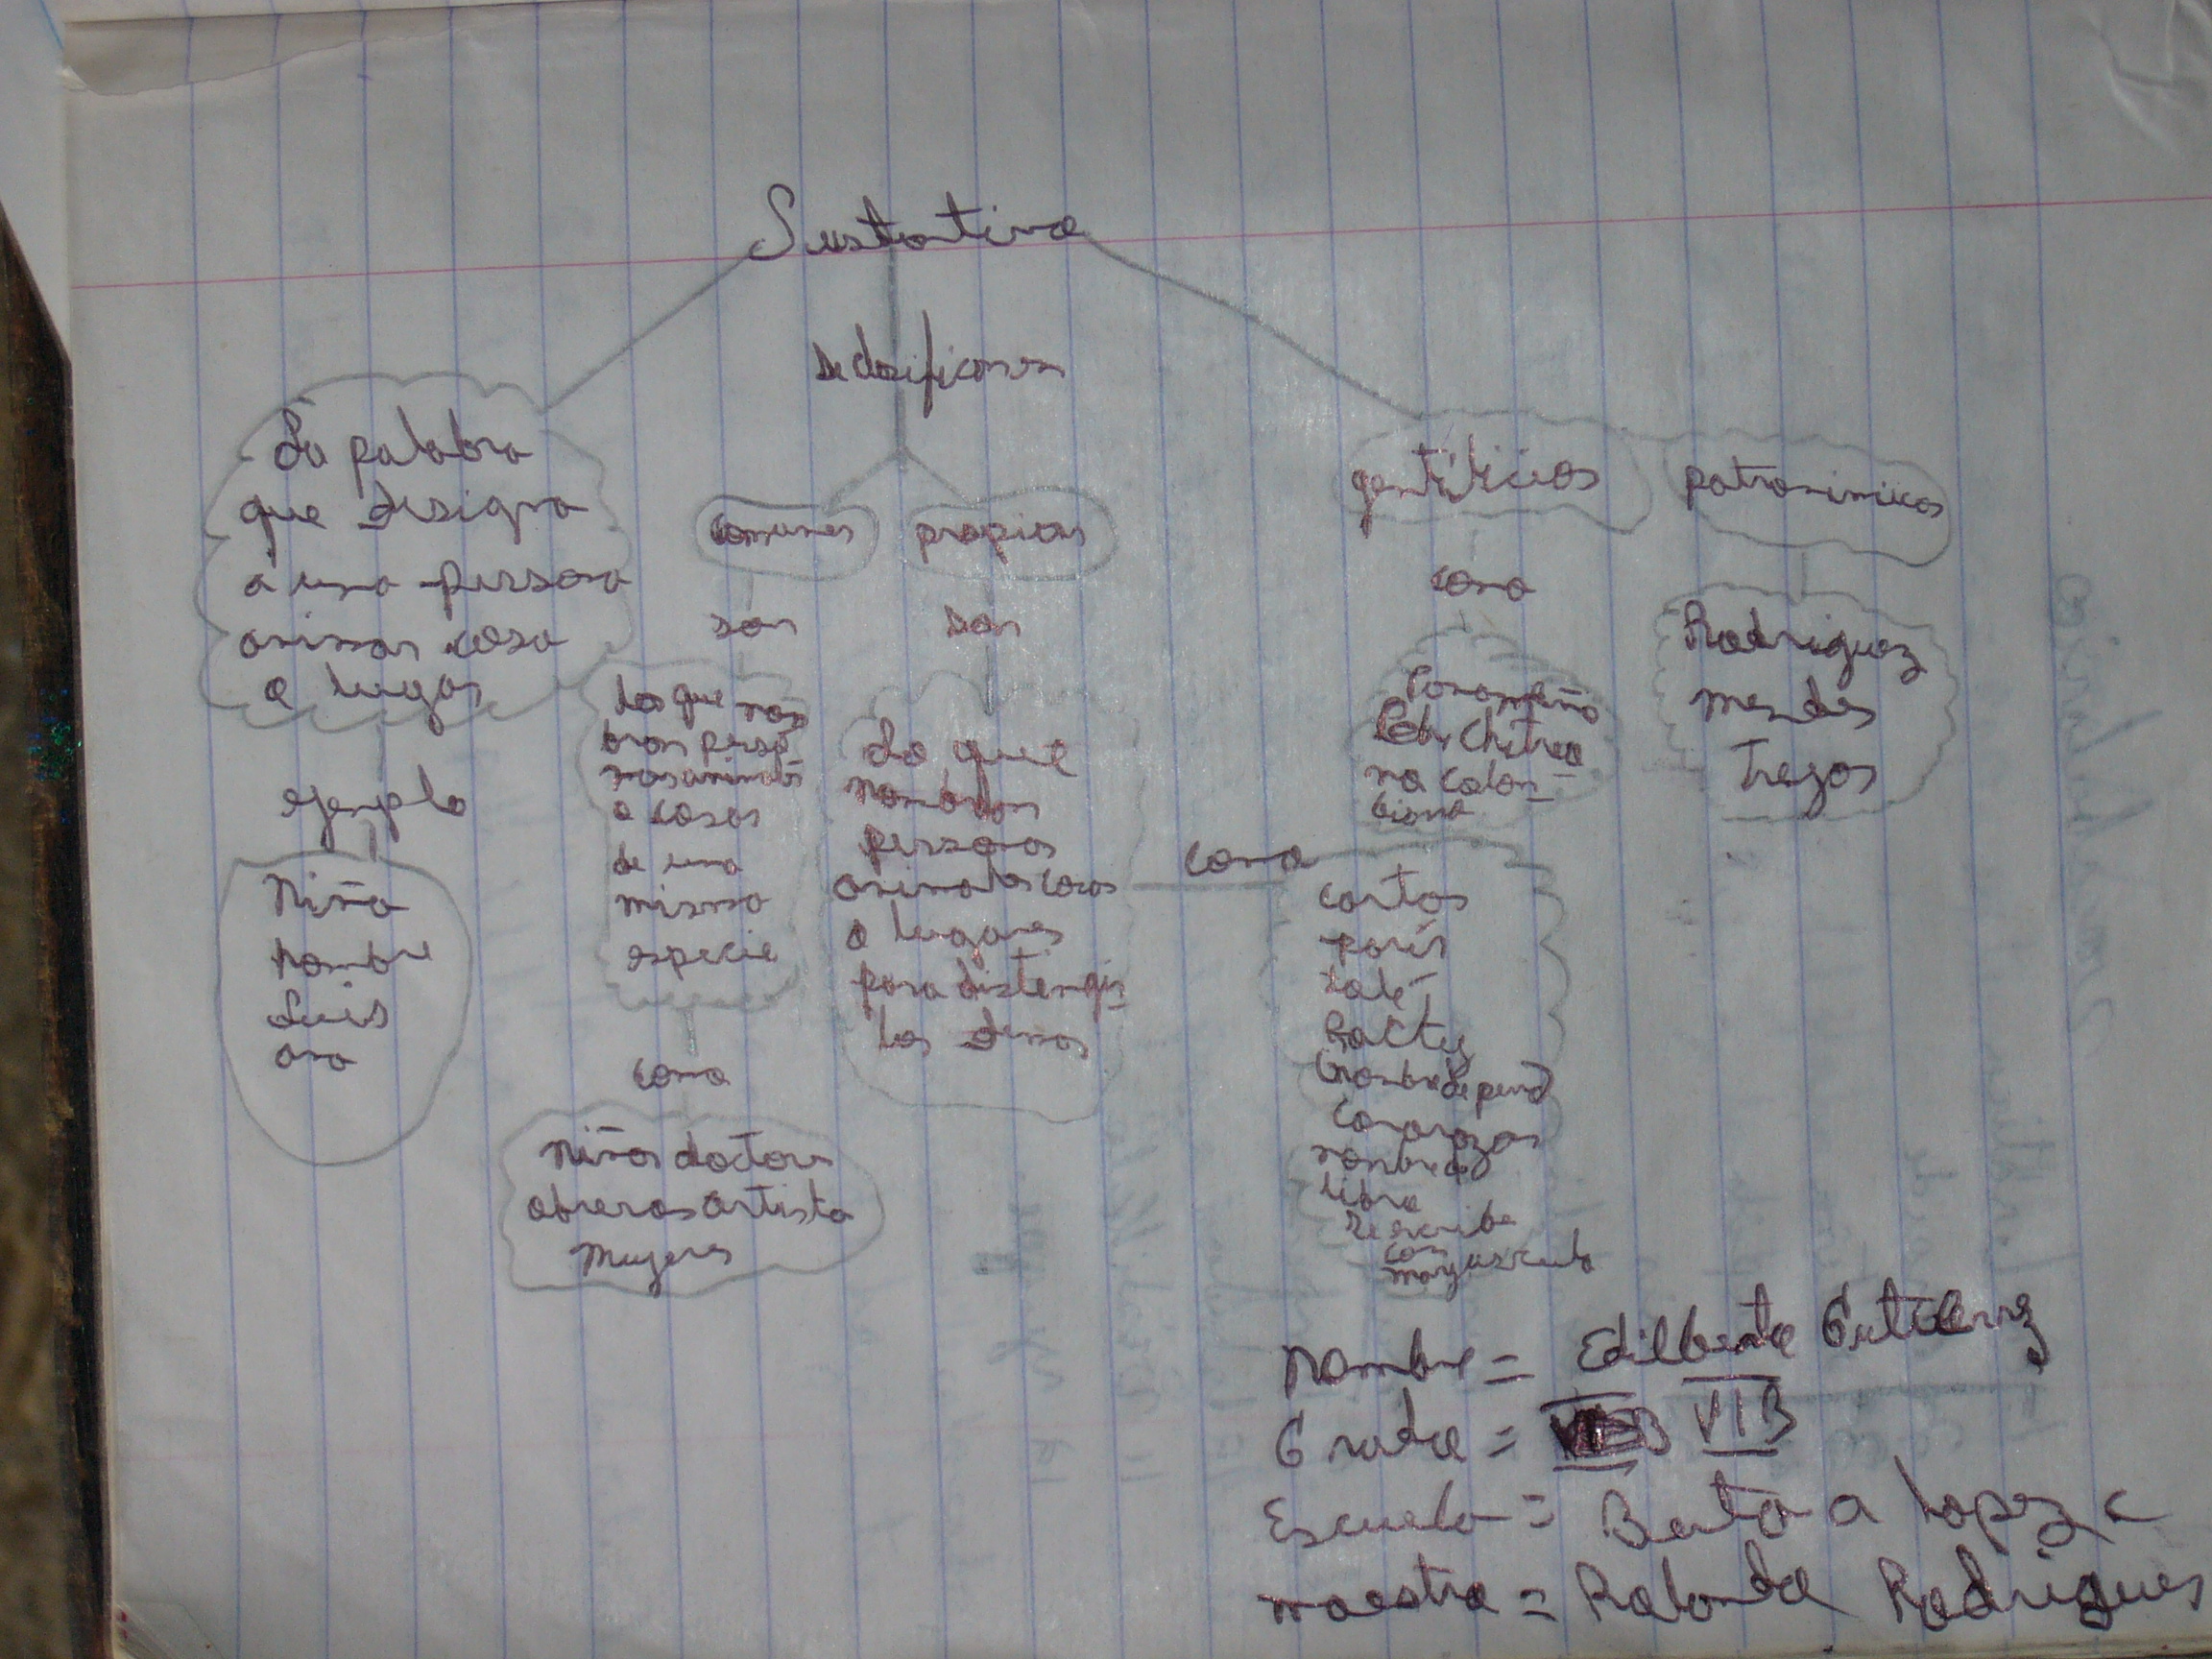 Sustantivo
se clasifican en
La palabra
que designa
a una persona
animar cosa
o lugar
ejemplo
Niño
hombre
Luis
ana
comunes
son
Los que nom
bran perso
nas animales
o cosas
de una
misma
especie
como
niños doctores
obreros artista
mujeres
propios
son
Lo que
nombran
personas
animales cosas
o lugares
para distengir
los demas
como
carlos
parís
Ratty
(nombre de perro)
Corarazon
nombre de
libro
se escribe
con
mayuscula
gentilicios
como
Panameño
Chitrea
na colom
biana
patronimicos
Rodriguez
mendes
Trejos
Nombre = Edilberto Gutierrez
Grado = VIB
Escuela = Berta a lopez c
maestro = Rolando Rodrigues